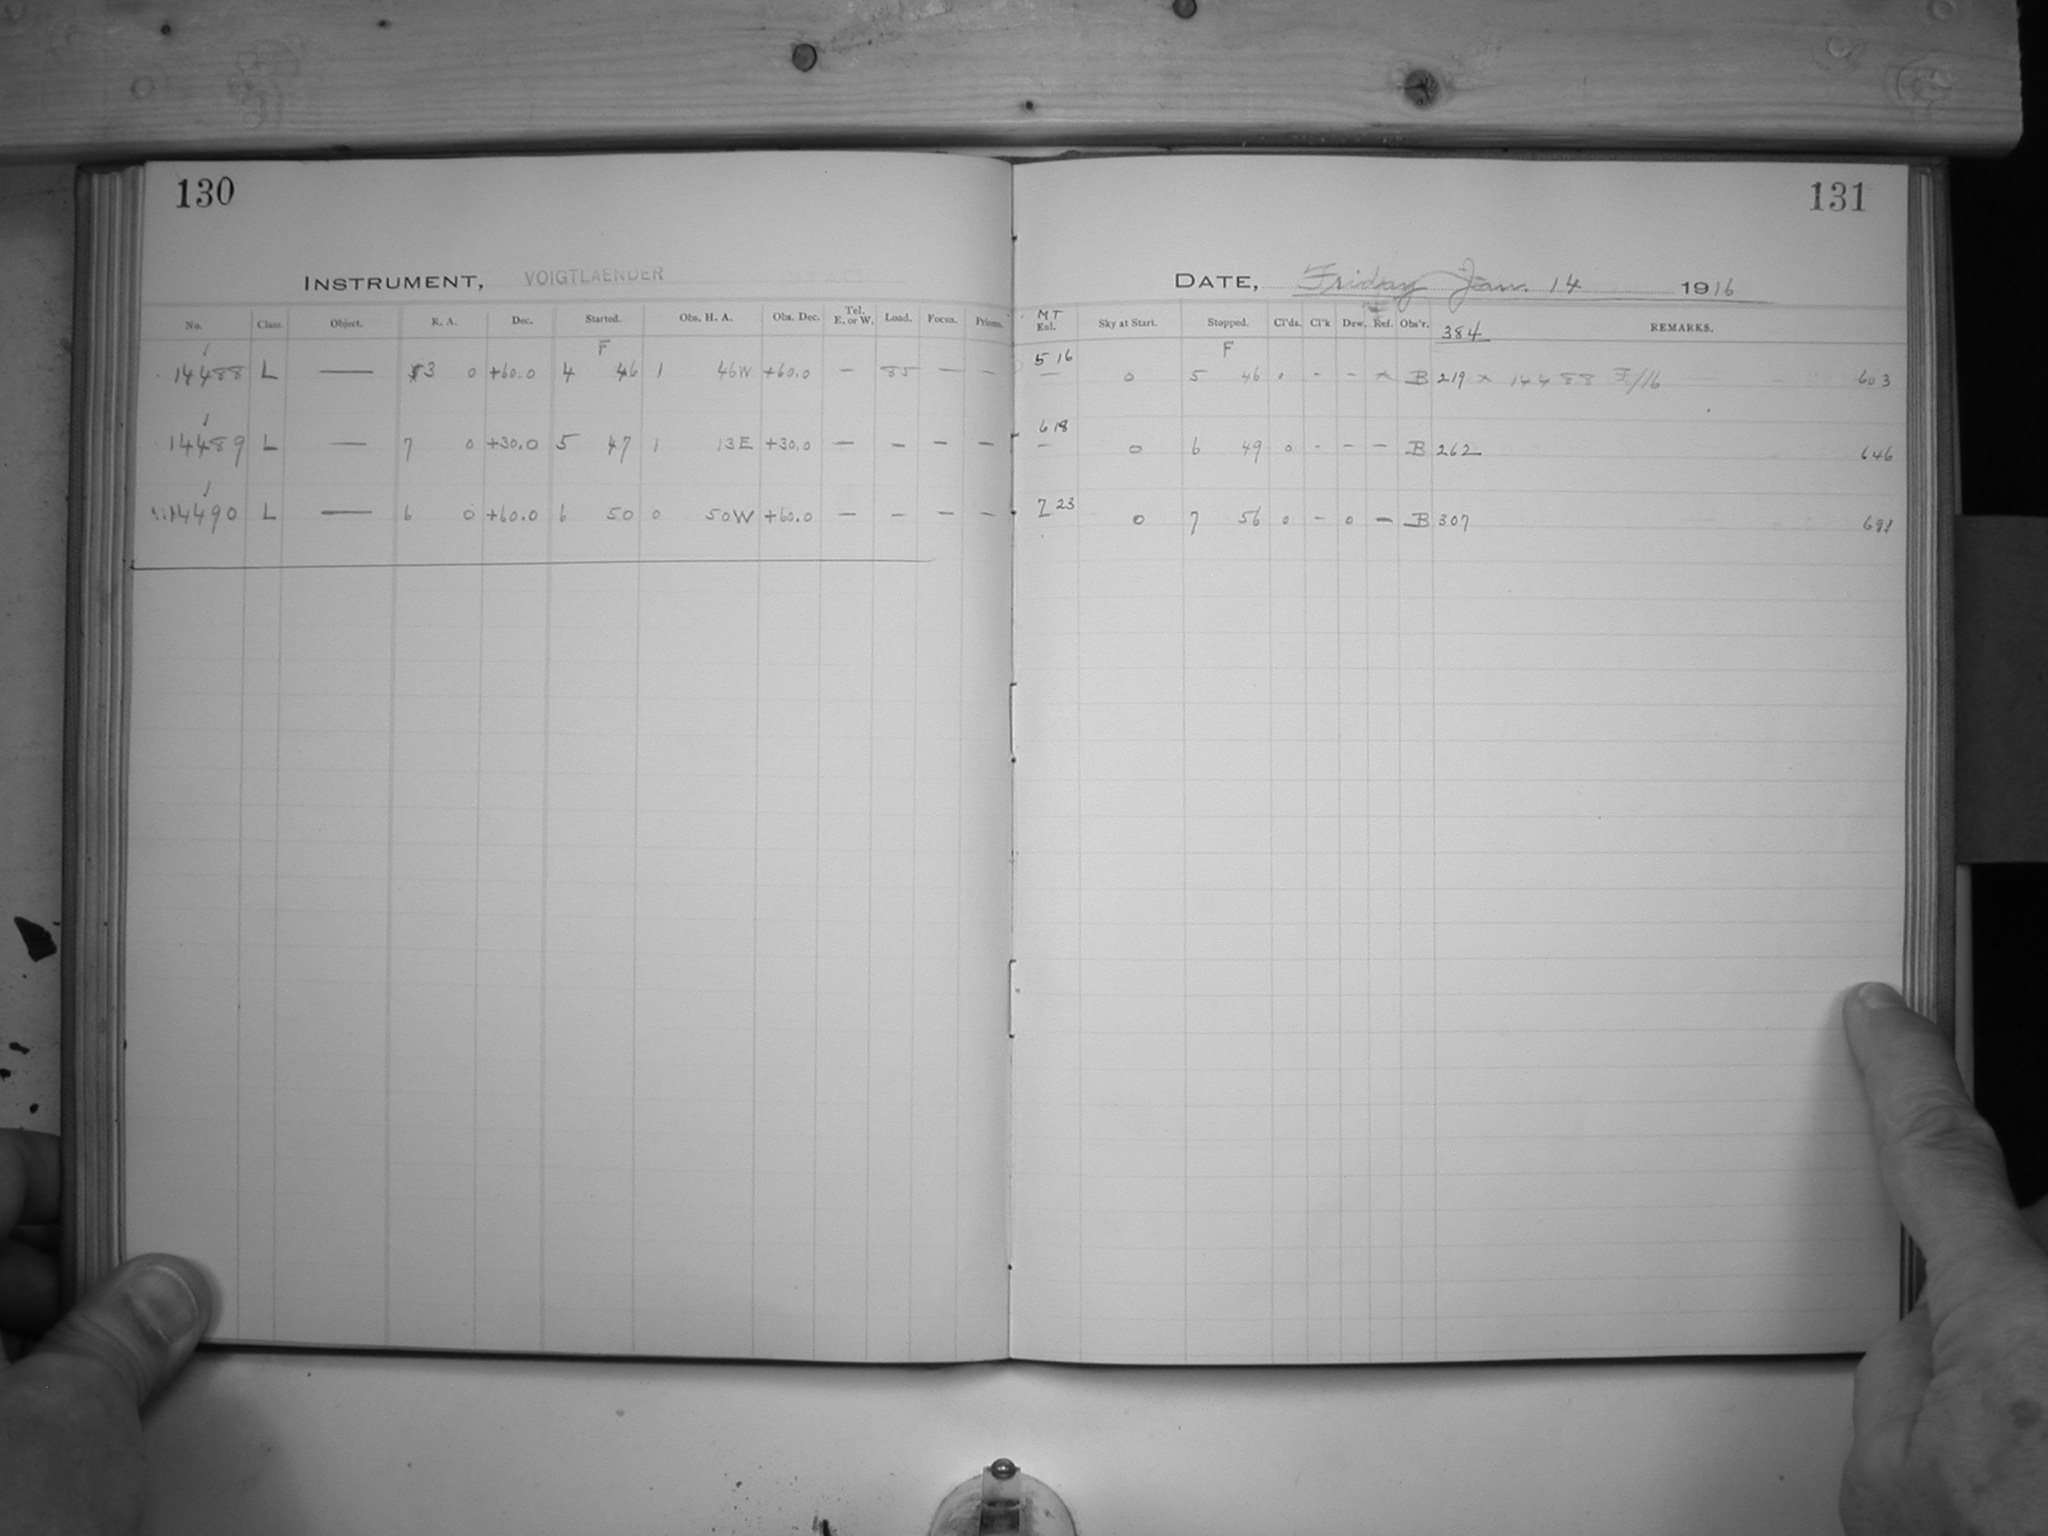 130
INSTRUMENT, VOIGTLAENDER
No. Class. Object. R. A. Dec. Started. Obs. H. A. Obs. Dec. Tel. E. or W. Load. Focus. Prisms.
F
14488 L — 3 0 +60.0 4 46 1 46W +60.0 — 85 — —
14489 L — 7 0 +30.0 5 47 1 13E +30.0 — — — —
14490 L — 6 0 +60.0 6 50 0 50W +60.0 — — — —
131
DATE, Friday Jan. 14 1916
MT
Enl. Sky at Start. Stopped. Cl'ds. Cl'k Dew. Ref. Obs'r. 384 REMARKS.
F
5 16 — 0 5 46 0 - - * B 219 * 14488 F/16 603
6 18 — 0 6 49 0 - - - B 262 646
7 23 — 0 7 56 0 - 0 - B 307 691